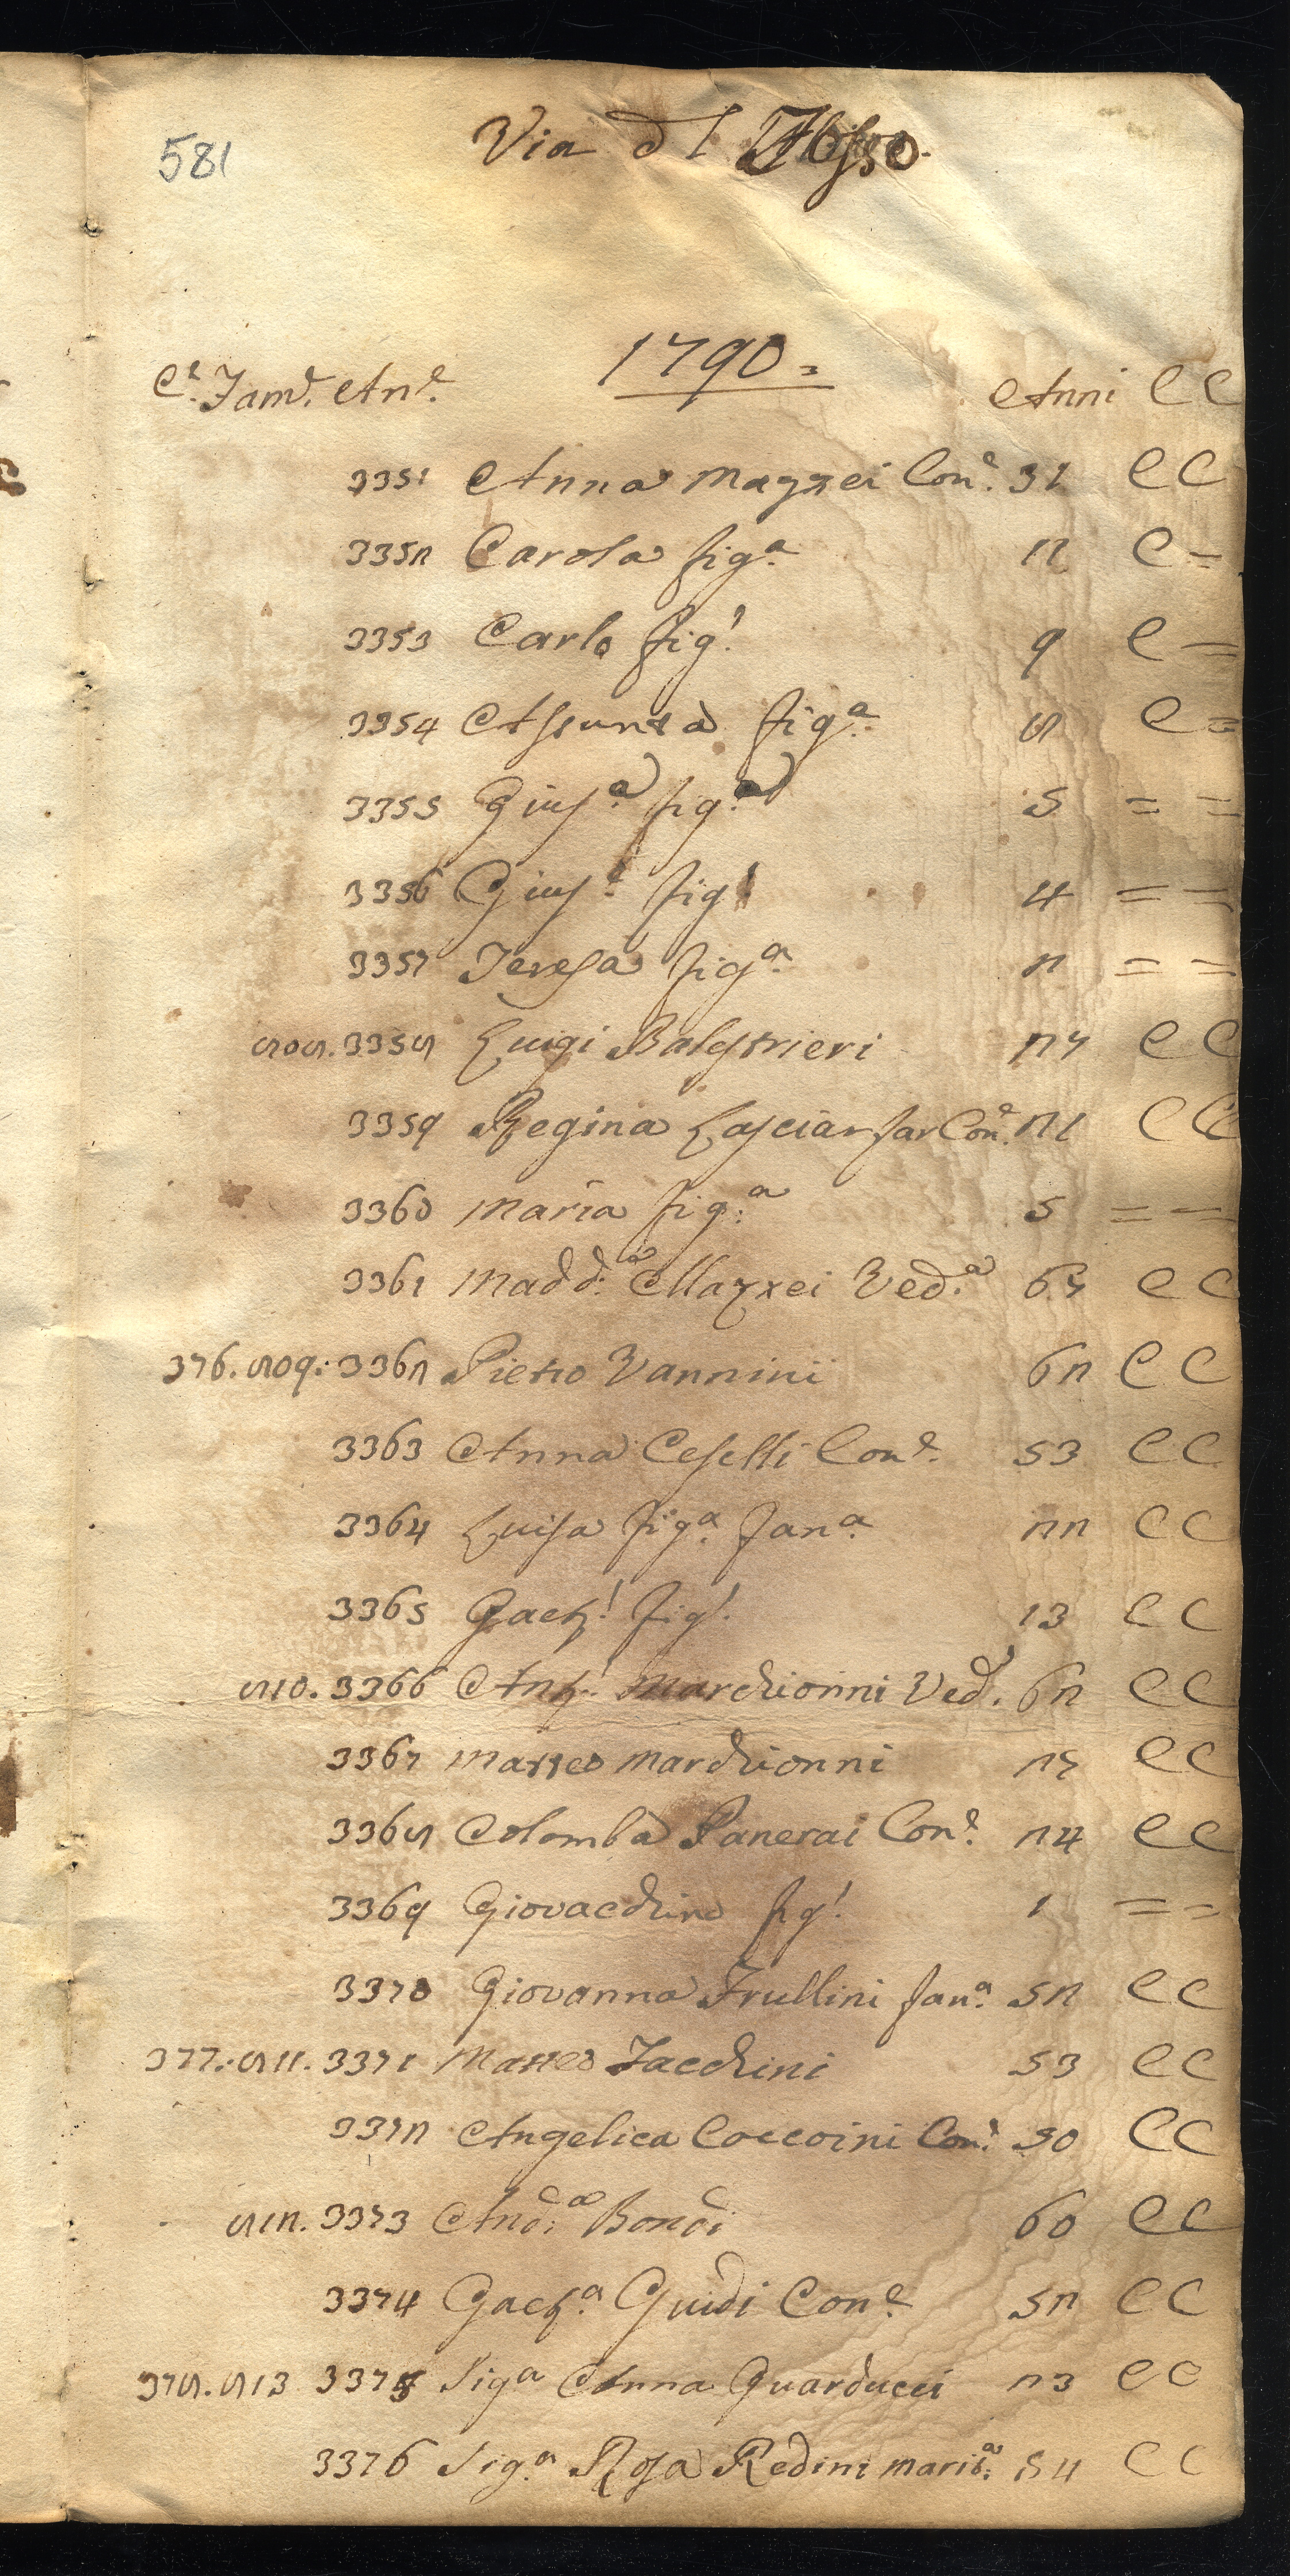 581
Via d l Fosso
1790=
C.e Fam.e An.e Anni C C
3351 Anna Mazzei Con.e 31 C C
3352 Carola fig.a 12 C =
3353 Carlo fig.o 9 C =
3354 Assunta fig.a 8 C =
3355 Gius.a fig.a 5 = =
3356 Gius.e fig.o 4 = =
3357 Teresa fig.a 2 = =
808. 3358 Luigi Balestrieri 27 C C
3359 Regina Lasciarfar Con.e 21 C C
3360 Maria fig.a 5 = =
3361 Madd.a Mazzei Ved.a 67 C C
376. 809. 3362 Pietro Vannini 62 C C
3363 Anna Ceselli Con.e 53 C C
3364 Luisa fig.a fan.a 22 C C
3365 Gaet.o fig.o 13 C C
810. 3366 Ant.o Marchionni Ved.o 62 C C
3367 Matteo Marchionni 25 C C
3368 Colomba Panerai Con.e 24 C C
3369 Giovacchino fig.o 1 = =
3370 Giovanna Frullini fan.a 52 C C
377. 811. 3371 Matteo Jacchini 53 C C
3372 Angelica Coccoini Con.e 50 C C
812. 3373 And.a Bondi 60 C C
3374 Gaet.a Guidi Con.e 52 C C
378. 813 3375 Sig.a Anna Guarducci 23 C C
3376 Sig.a Rosa Redini Marit.a 54 C C